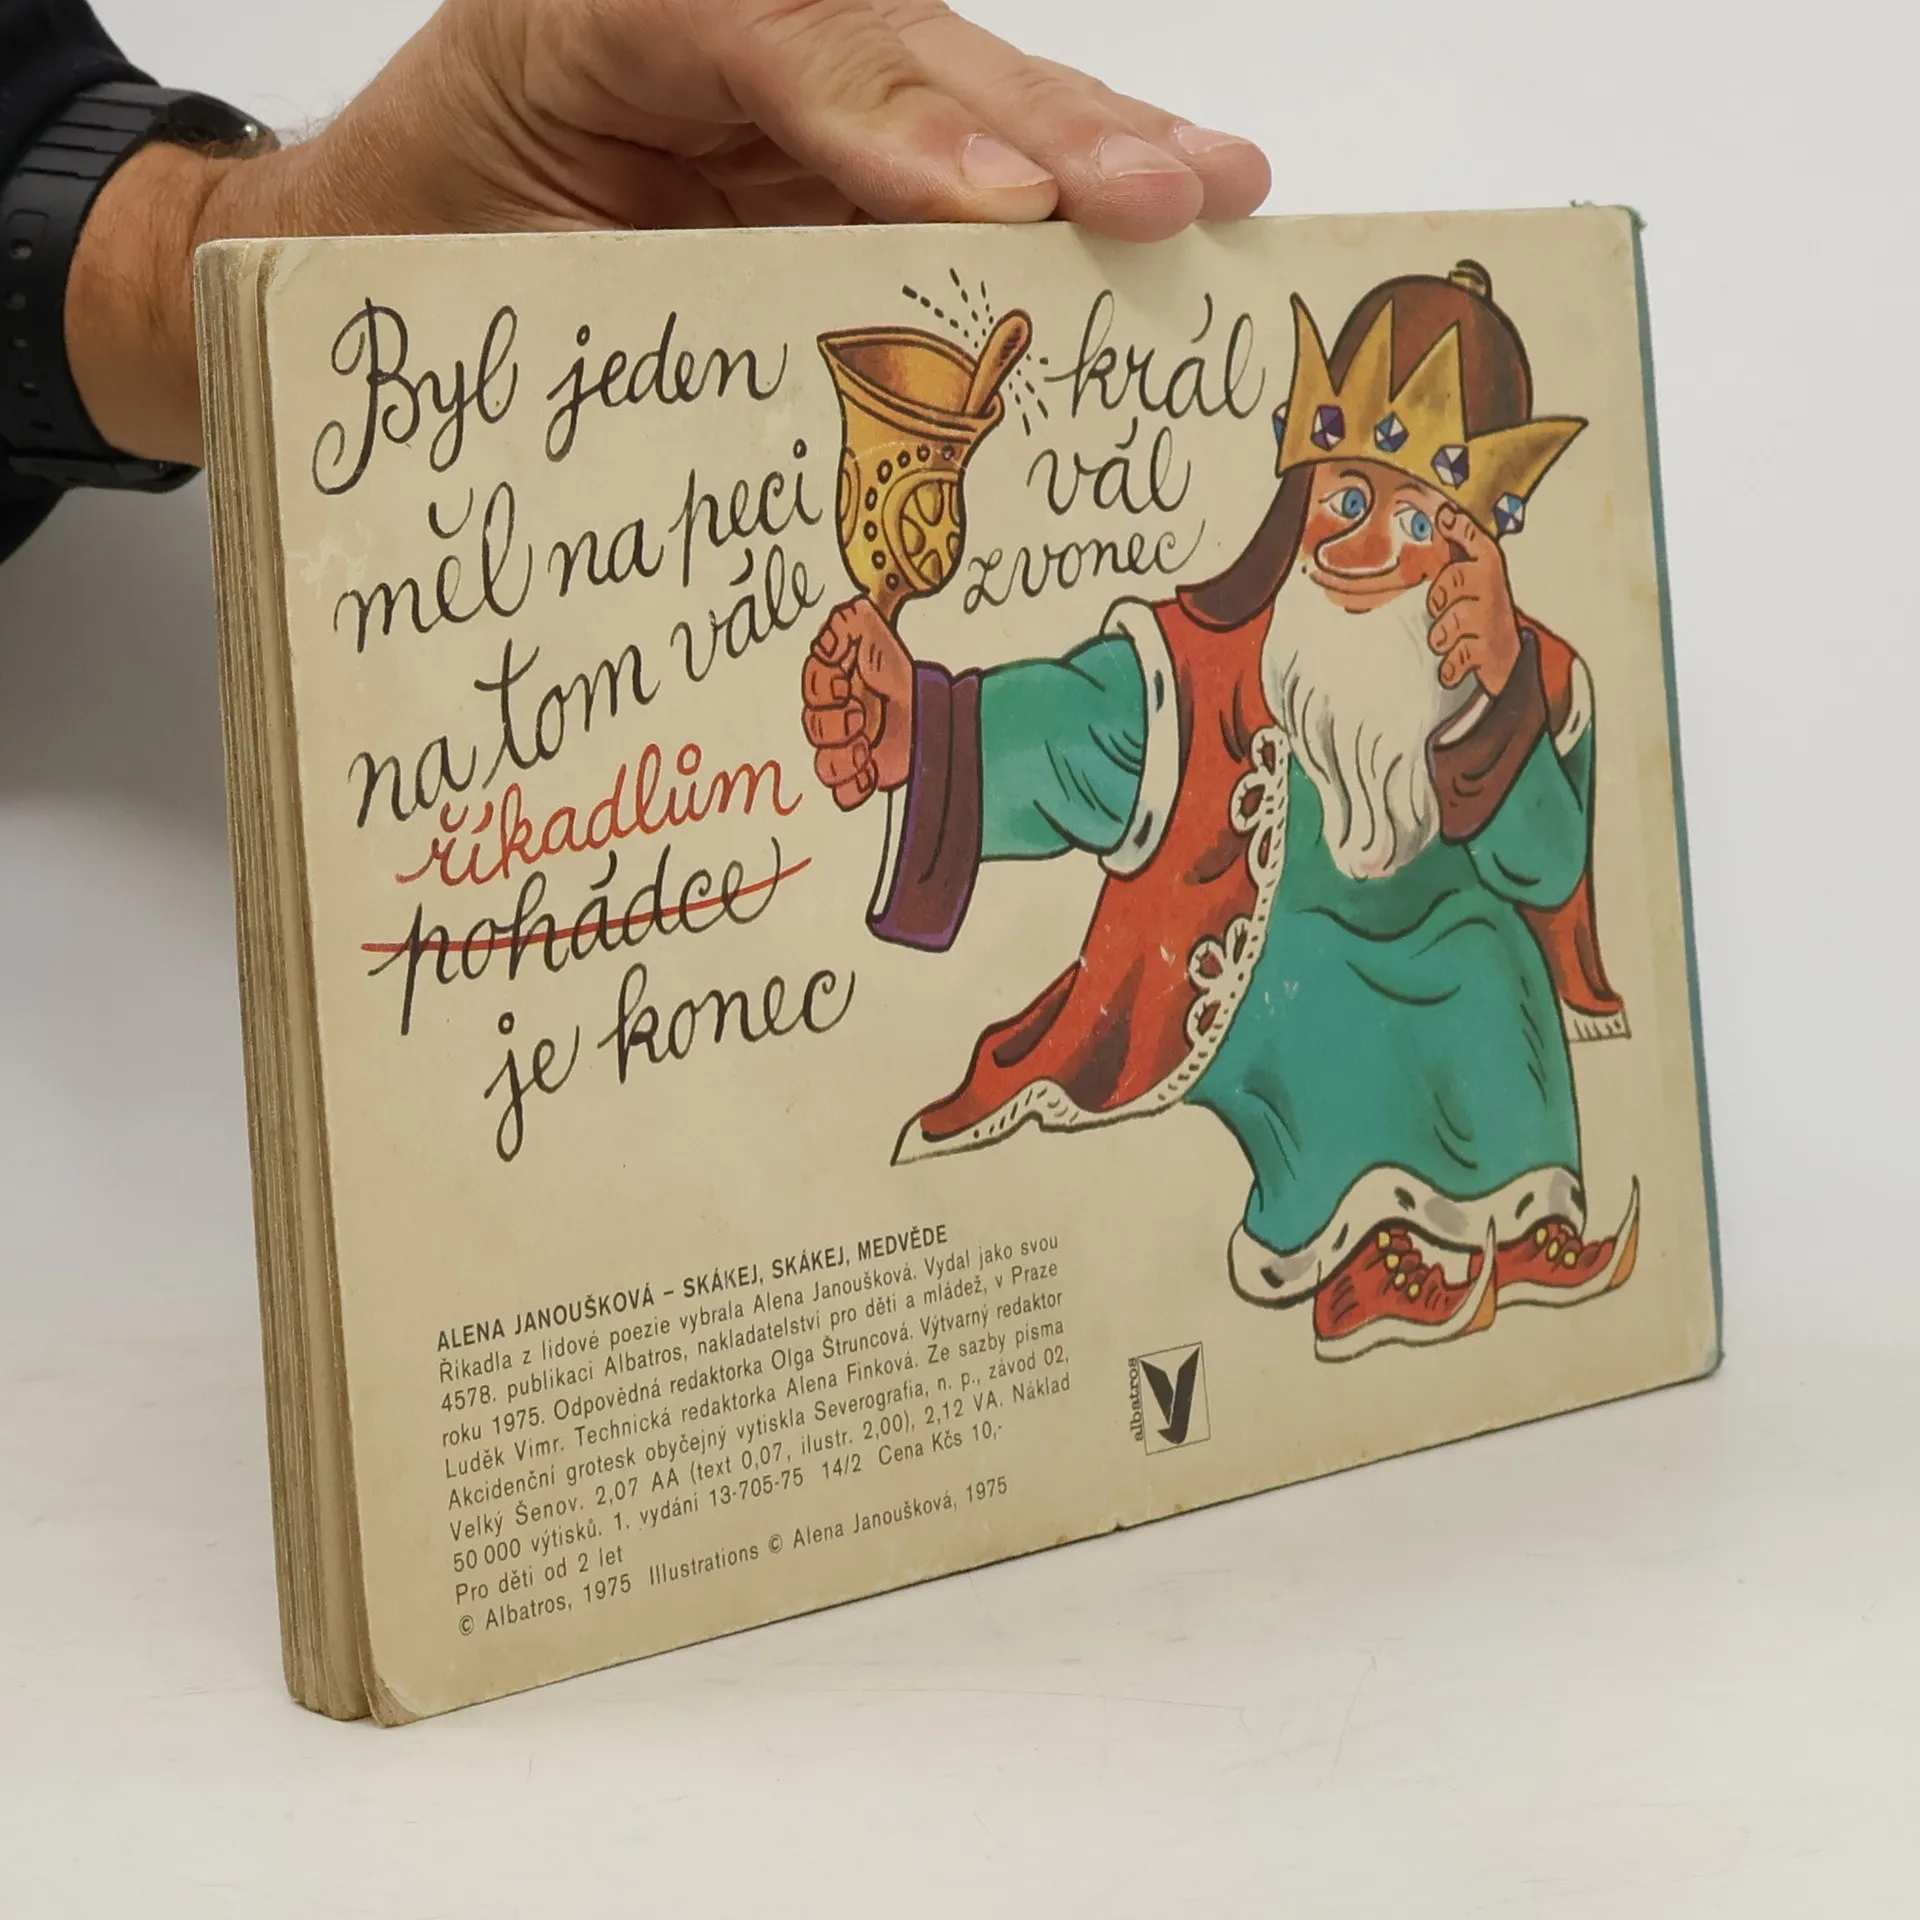 Byl jeden král
měl na peci vál
na tom vále zvonec
říkadlům
pohádce
je konec
ALENA JANOUŠKOVÁ – SKÁKEJ, SKÁKEJ, MEDVĚDE
Říkadla z lidové poezie vybrala Alena Janoušková. Vydal jako svou
4578. publikaci Albatros, nakladatelství pro děti a mládež, v Praze
roku 1975. Odpovědná redaktorka Olga Štruncová. Výtvarný redaktor
Luděk Vimr. Technická redaktorka Alena Finková. Ze sazby písma
Akcidenční grotesk obyčejný vytiskla Severografia, n. p., závod 02,
Velký Šenov. 2,07 AA (text 0,07, ilustr. 2,00), 2,12 VA. Náklad
50 000 výtisků. 1. vydání 13-705-75 14/2 Cena Kčs 10,-
Pro děti od 2 let
© Albatros, 1975 Illustrations © Alena Janoušková, 1975
albatros